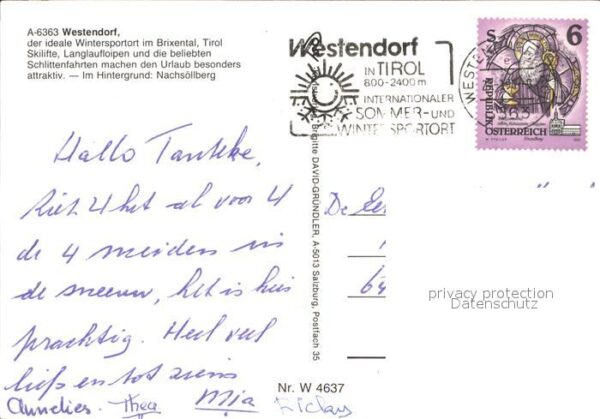 A-6363 Westendorf,
der ideale Wintersportort im Brixental, Tirol
Skilifte, Langlaufloipen und die beliebten
Schlittenfahrten machen den Urlaub besonders
attraktiv. — Im Hintergrund: Nachsöllberg
Westendorf
IN TIROL
800-2400 m
INTERNATIONALER
SOMMER- UND
WINTERSPORTORT
S 6
REPUBLIK
ÖSTERREICH
Hallo Tanteke,
4 al voor 4
de 4 meiden in
de sneeuw, het is hier
prachtig. Heel veel
liefs en tot ziens
Annelies. Thea Mia
De
Brigitte DAVID-GRÜNDLER, A-5013 Salzburg, Postfach 35
privacy protection
Datenschutz
Nr. W 4637